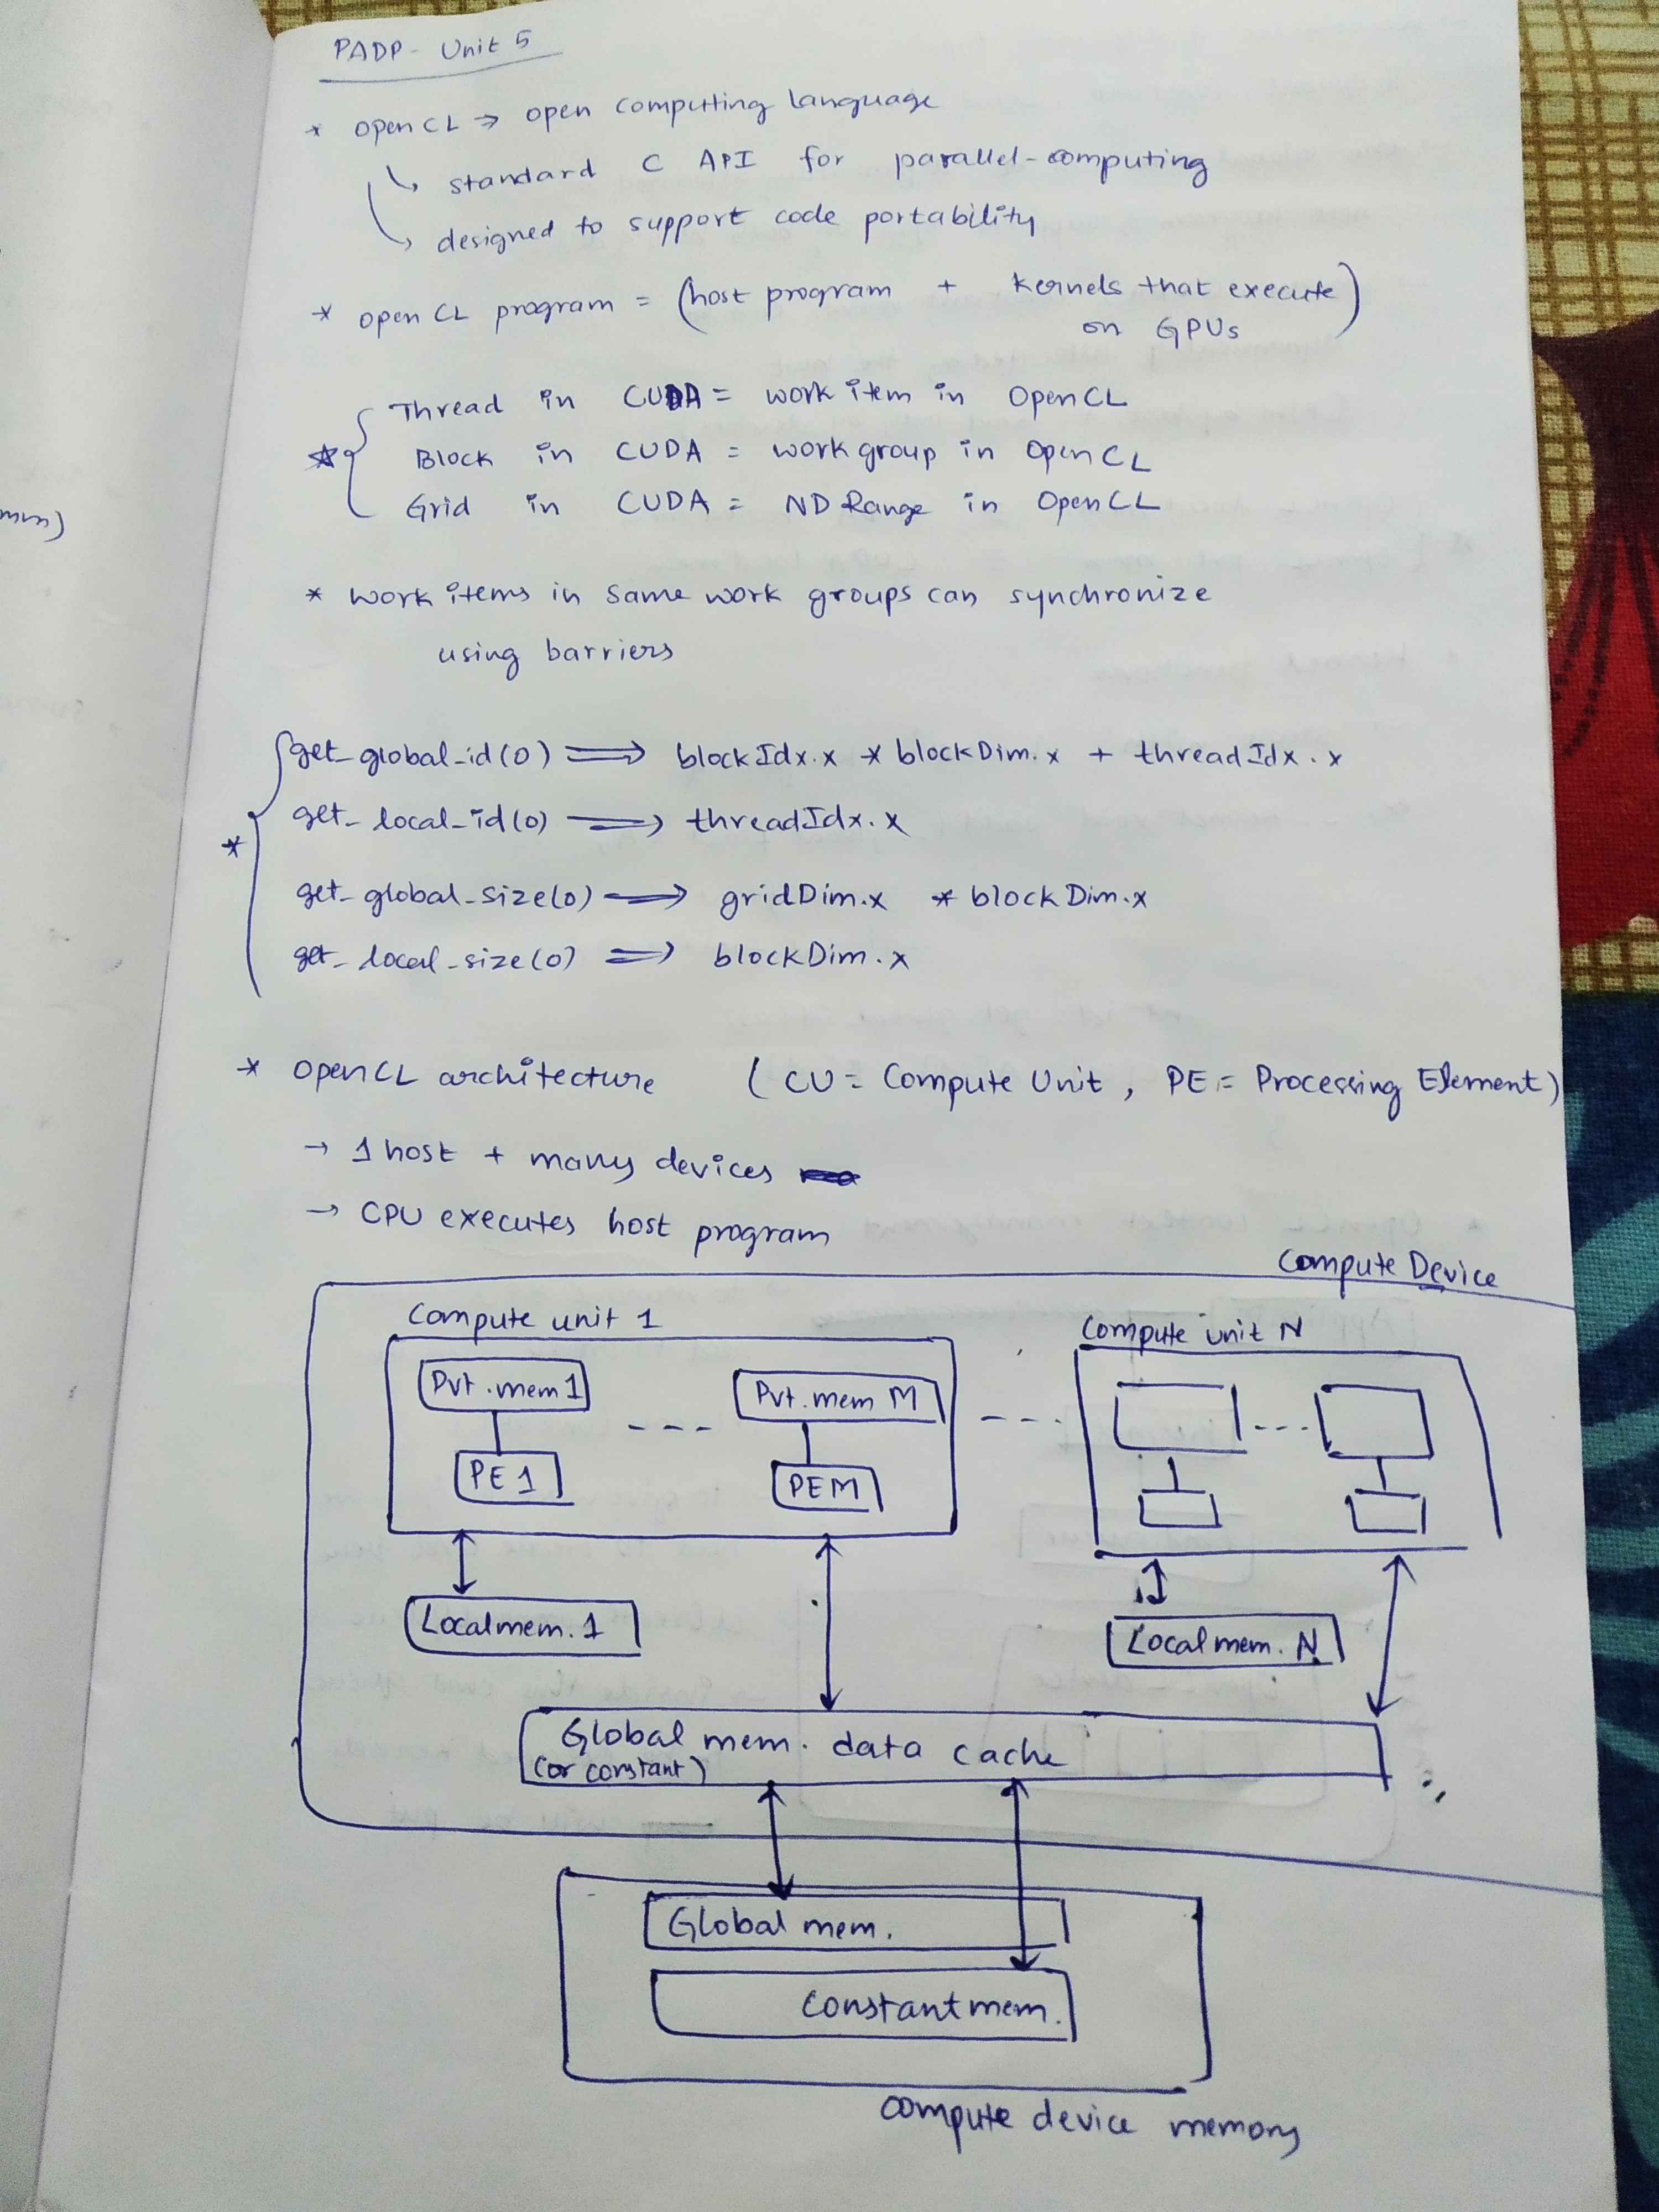 PADP - Unit 5
* OpenCL → open computing language
↳ standard C API for parallel-computing
↳ designed to support code portability
* open CL program = (host program + kernels that execute
on GPUs)
Thread in CUDA = work item in OpenCL
* Block in CUDA = workgroup in OpenCL
Grid in CUDA = ND Range in OpenCL
* work items in same work groups can synchronize
using barriers
get_global_id(0) ⟹ blockIdx.x * blockDim.x + threadIdx.x
get_local_id(0) ⟹ threadIdx.x
*
get_global_size(0) ⟹ gridDim.x * blockDim.x
get_local_size(0) ⟹ blockDim.x
* OpenCL architecture (CU = Compute Unit, PE = Processing Element)
→ 1 host + many devices
→ CPU executes host program
Compute Device
Compute unit 1
Compute unit N
Pvt.mem 1 --- Pvt.mem M --- ---
PE 1 PEM
Local mem. 1
Local mem. N
Global mem. data cache
(or constant)
Global mem.
Constant mem.
compute device memory
mm)